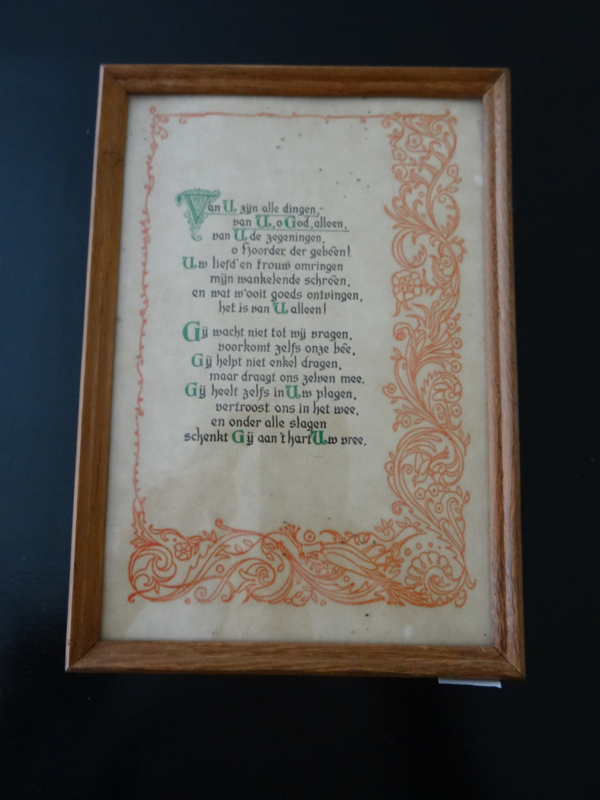 Van U zijn alle dingen,
van U, o God, alleen,
van U de zegeningen,
o Hoorder der gebeên!
Uw liefd' en trouw omringen
mijn wankelende schreên,
en wat w'ooit goeds ontvingen,
het is van U alleen!
Gij wacht niet tot wij vragen,
voorkomt zelfs onze beê,
Gij helpt niet enkel dragen,
maar draagt ons zelven mee.
Gij heelt zelfs in Uw plagen,
vertroost ons in het wee,
en onder alle slagen
schenkt Gij aan 't hart Uw vree.